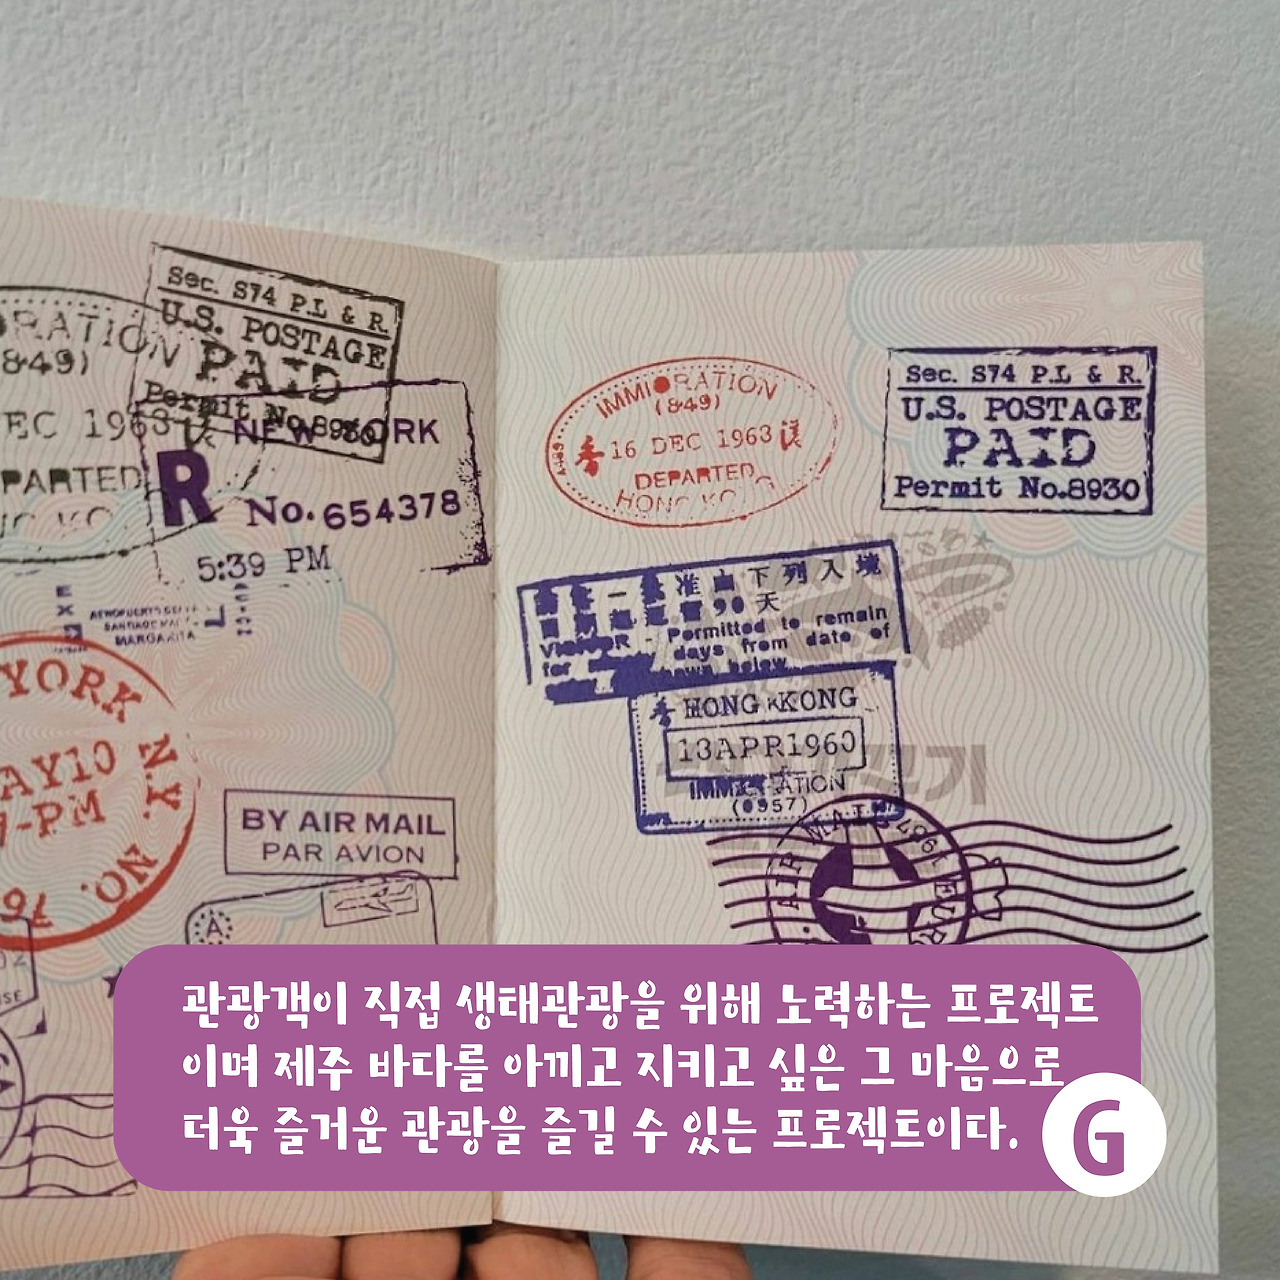 Sec. S74 P.L & R.
U.S. POSTAGE
PAID
Permit No.8930
ORATION
(849)
DEC 1963
PARTED
NEW YORK
R No.654378
5:39 PM
MARGARITA
YORK N.Y.
AY10
-PM
NO. 76
BY AIR MAIL
PAR AVION
A
IMMIGRATION
(849)
香 16 DEC 1963 港
DEPARTED
HONG KO
Sec. S74 P.L & R.
U.S. POSTAGE
PAID
Permit No.8930
一 准由下列入境
90天
VISITOR - Permitted to remain
for days from date of
shown below
香 HONG KONG
13APR1960
IMMIGRATION
(0957)
AIR MAIL 1967
관광객이 직접 생태관광을 위해 노력하는 프로젝트
이며 제주 바다를 아끼고 지키고 싶은 그 마음으로
더욱 즐거운 관광을 즐길 수 있는 프로젝트이다.
G